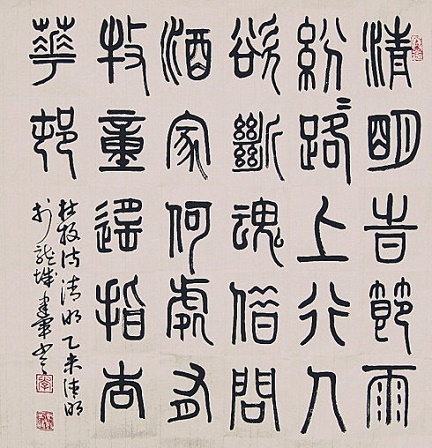 清明旹節雨
紛〻路上行人
欲斷魂借問
酒家何處有
牧童遙指杏
華邨
杜牧詩清明乙未清明
於龍城書